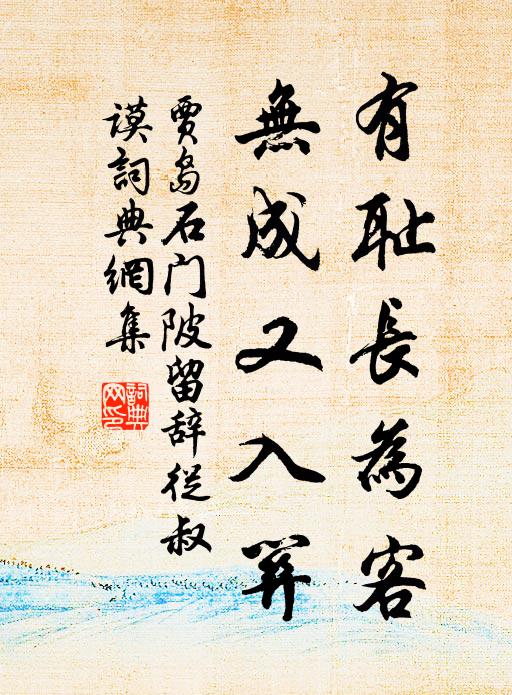 有恥長為客
無成又入關
賈島石门陂留辞從叔
謨詞典網集
詞典
网印